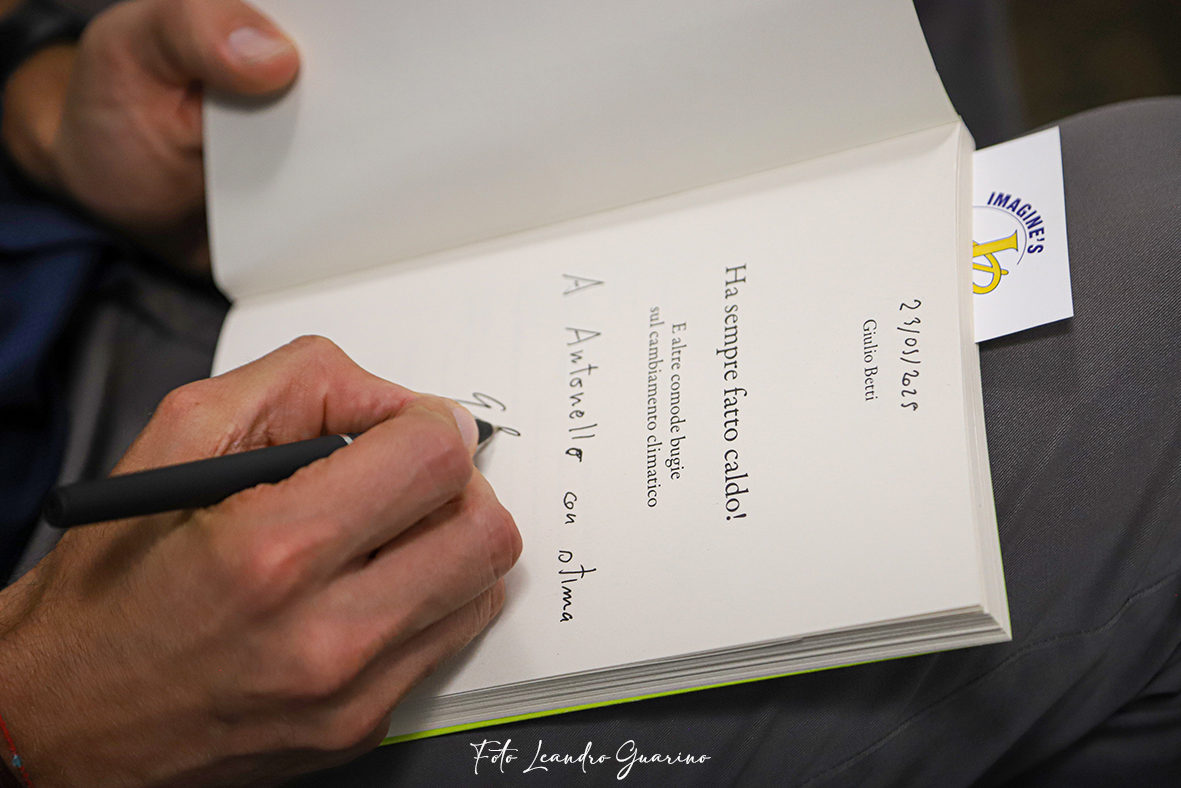 23/05/2025
Giulio Betti
Ha sempre fatto caldo!
E altre comode bugie
sul cambiamento climatico
A Antonello con stima
IMAGINE'S
Foto Leandro Guarino